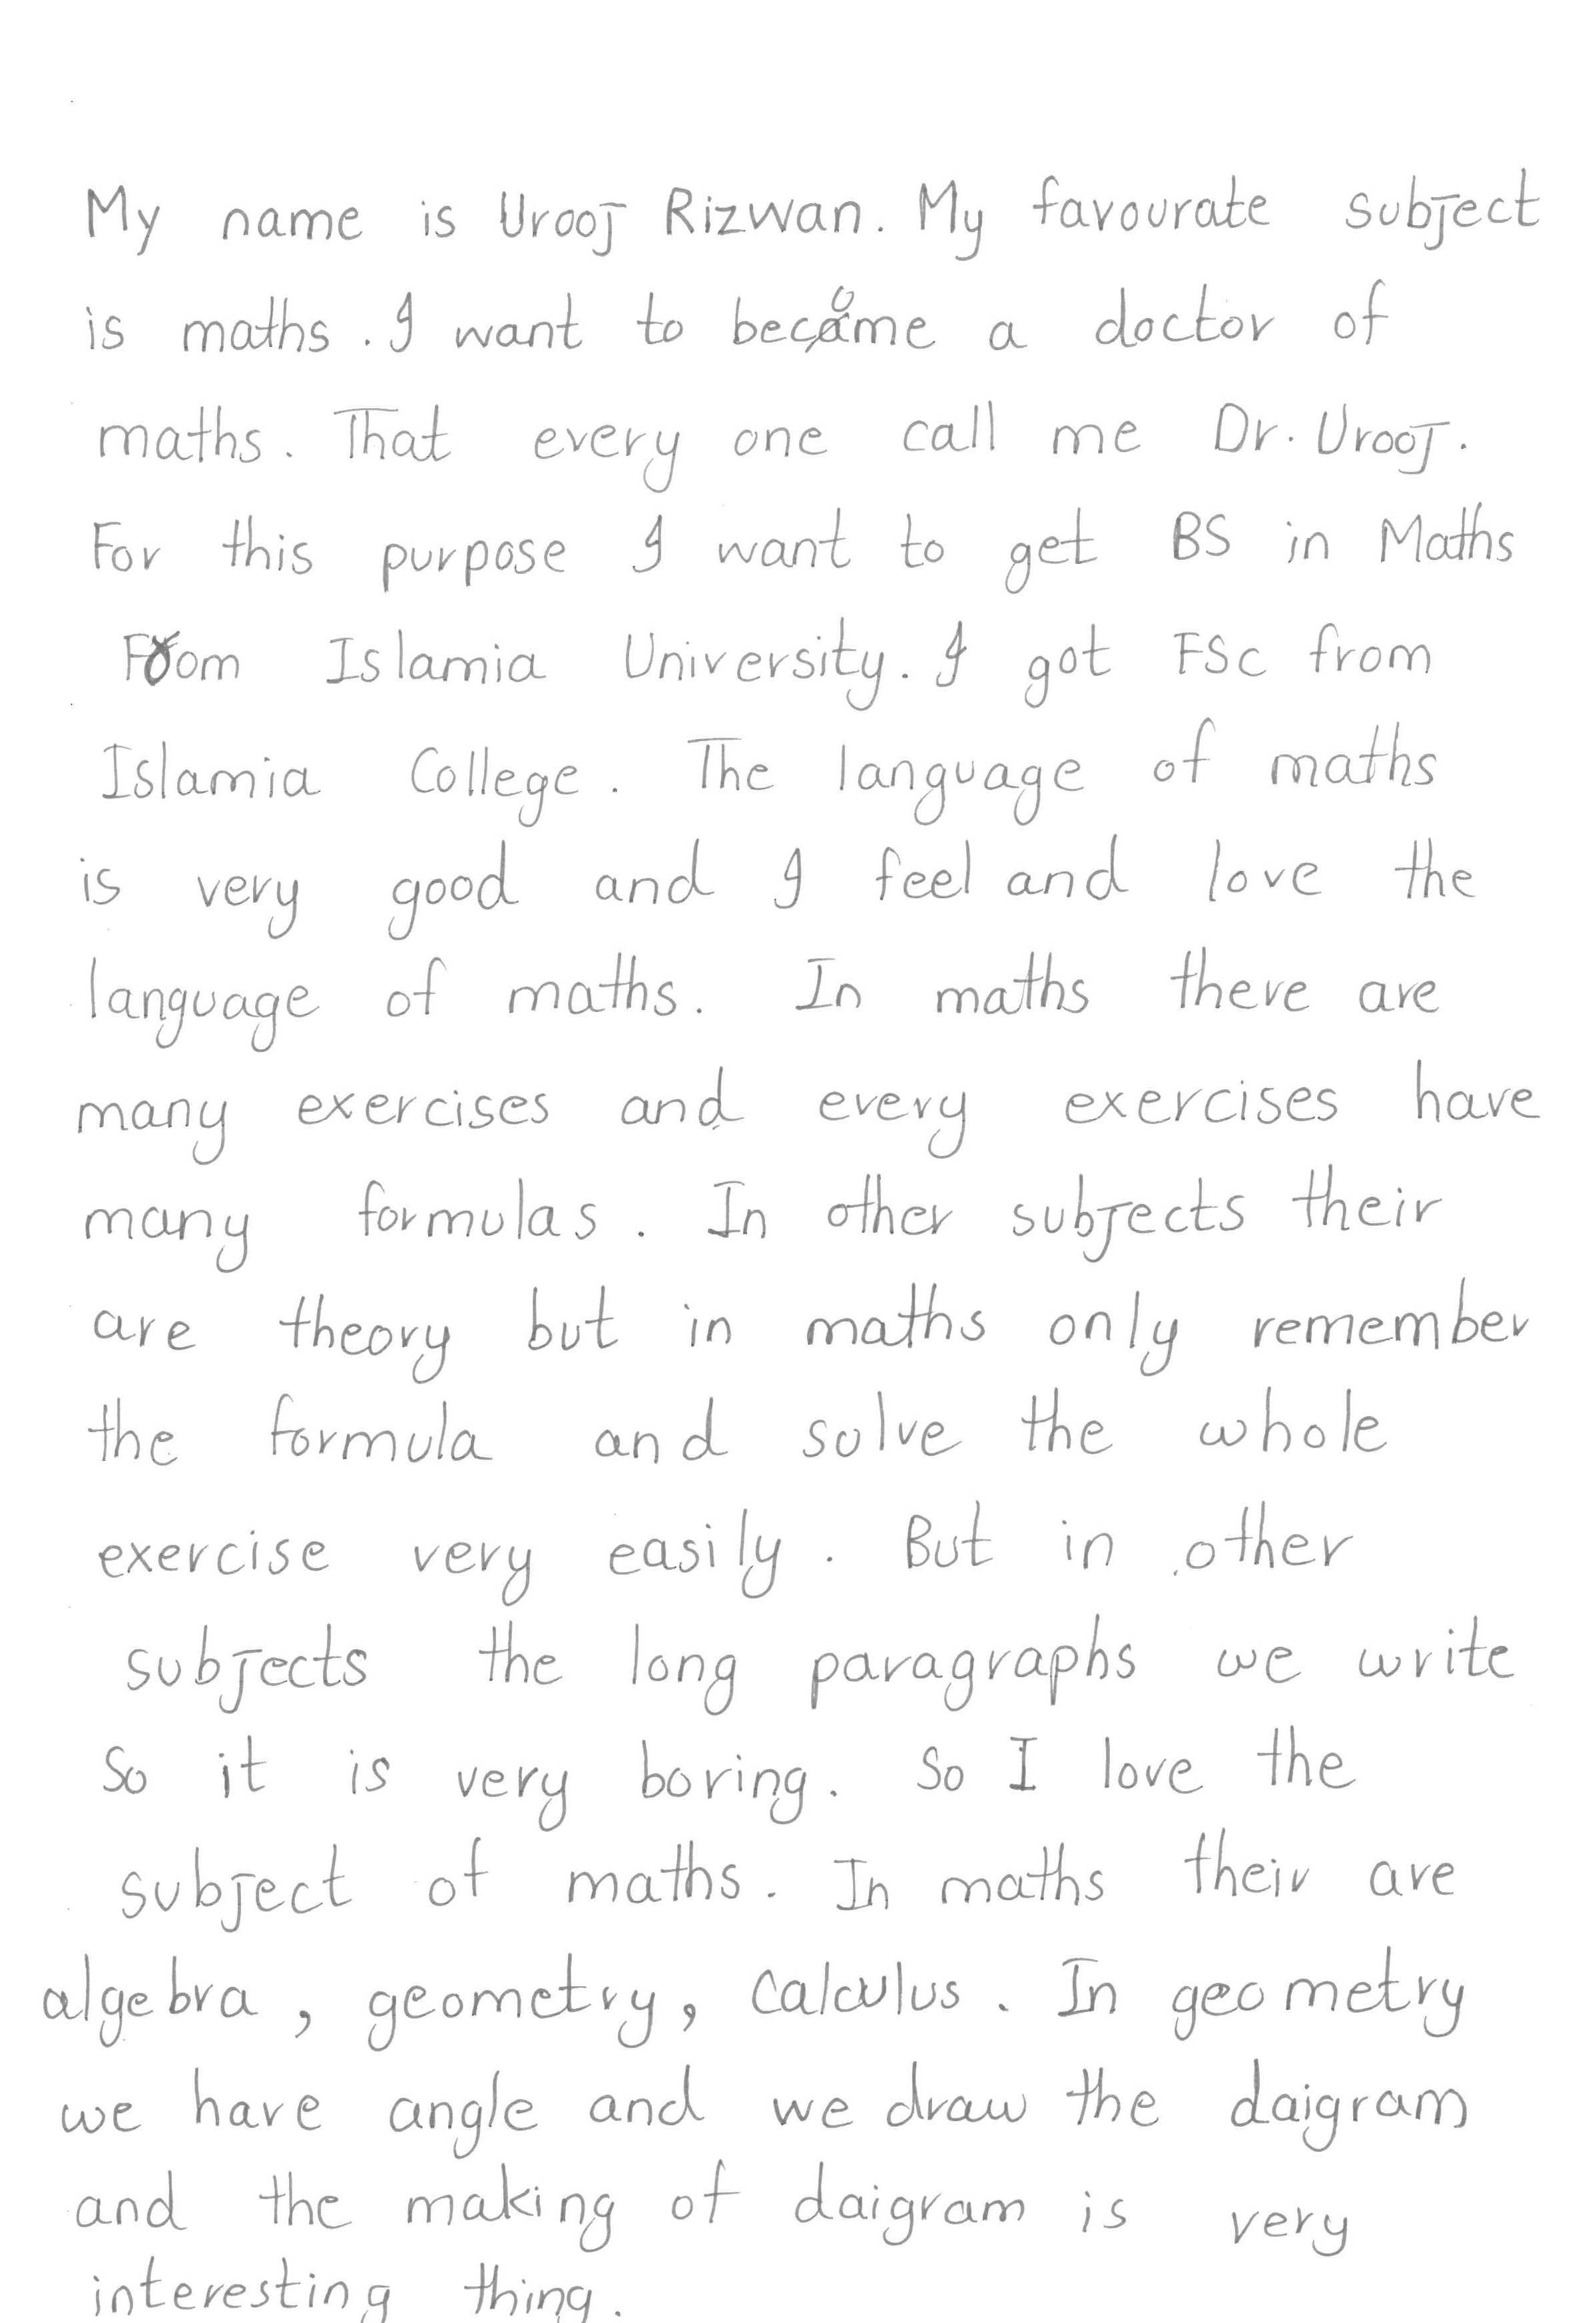 My name is Urooj Rizwan. My favourate subject
is maths. I want to become a doctor of
maths. That every one call me Dr. Urooj.
For this purpose I want to get BS in Maths
From Islamia University. I got FSc from
Islamia College. The language of maths
is very good and I feel and love the
language of maths. In maths there are
many exercises and every exercises have
many formulas. In other subjects their
are theory but in maths only remember
the formula and solve the whole
exercise very easily. But in other
subjects the long paragraphs we write
So it is very boring. So I love the
subject of maths. In maths their are
algebra, geometry, Calculus. In geometry
we have angle and we draw the daigram
and the making of daigram is very
interesting thing.